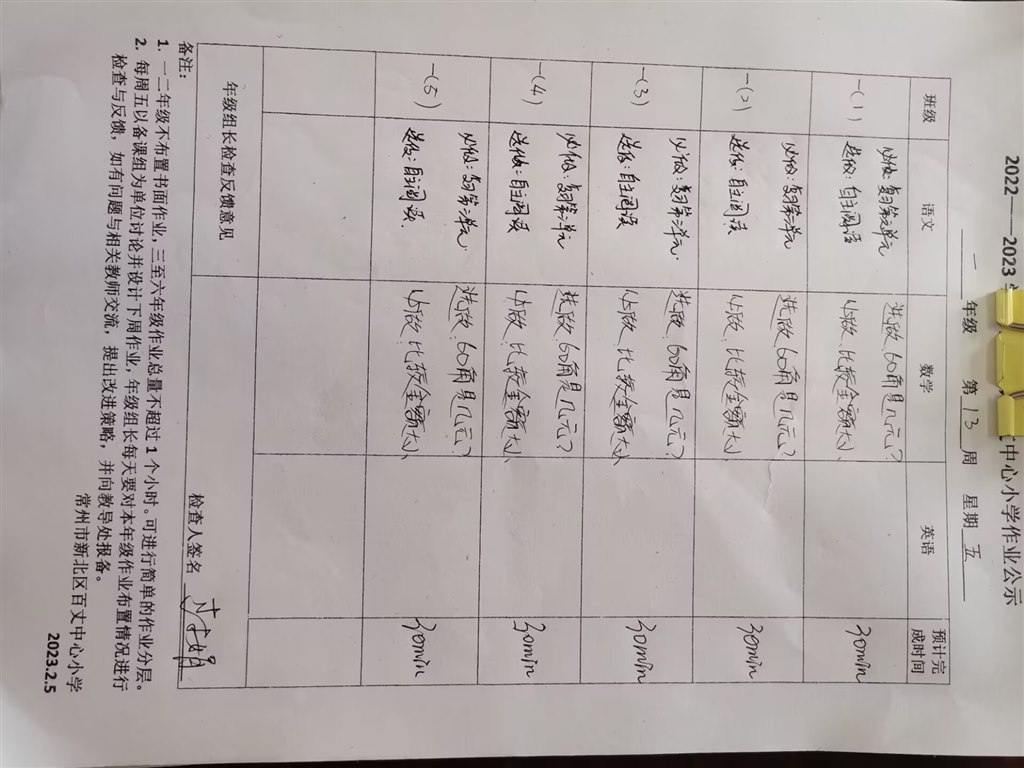 2022——2023
中心小学作业公示
一 年级 第 13 周 星期 五
班级 语文 数学 英语 预计完成时间
一(1) 必做：复习第二单元 选做 60角是几元？ 30min
选做：自主阅读 必做：比较金额大小
一(2) 必做：复习第二单元 选做 60角是几元？ 30min
选做：自主阅读 必做：比较金额大小
一(3) 必做：复习第二单元 选做 60角是几元？ 30min
选做：自主阅读 必做：比较金额大小
一(4) 必做：复习第二单元 选做 60角是几元？ 30min
选做：自主阅读 必做：比较金额大小
一(5) 必做：复习第二单元 选做 60角是几元？ 30min
选做：自主阅读 必做：比较金额大小
年级组长检查反馈意见 检查人签名
备注：
1. 一二年级不布置书面作业，三至六年级作业总量不超过 1 个小时。可进行简单的作业分层。
2. 每周五以备课组为单位讨论并设计下周作业，年级组长每天要对本年级作业布置情况进行
检查与反馈，如有问题与相关教师交流，提出改进策略，并向教导处报备。
常州市新北区百丈中心小学
2023.2.5